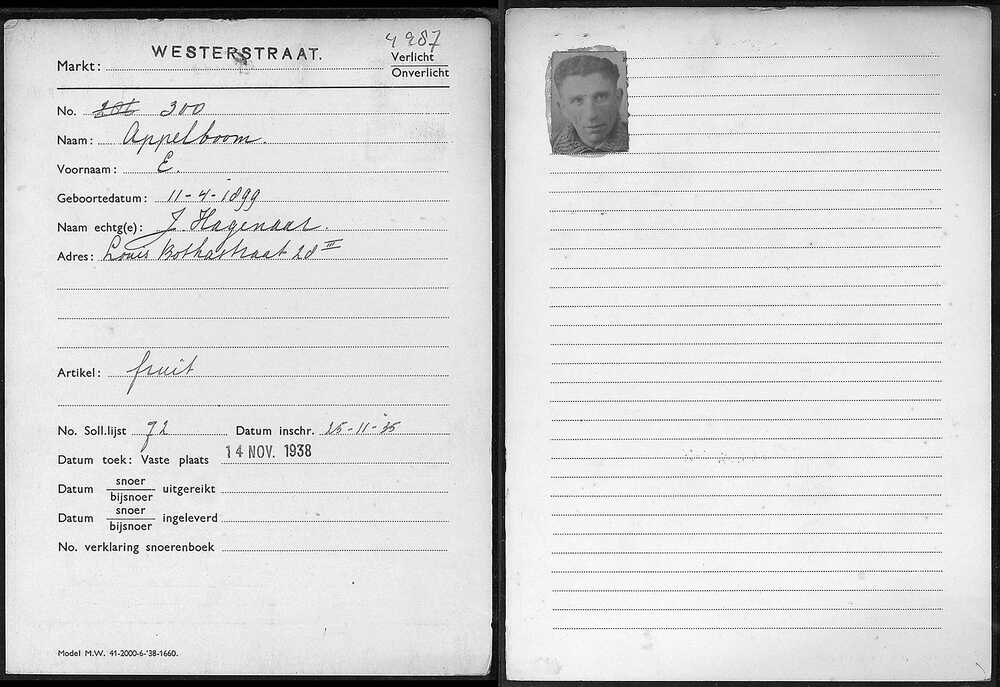 4987
WESTERSTRAAT.
Markt:
Verlicht
Onverlicht
No. 206 300
Naam: Appelboom.
Voornaam: E.
Geboortedatum: 11-4-1899
Naam echtg(e): J. Hagenaar.
Adres: Louis Bothastraat 28 III
Artikel: fruit
No. Soll.lijst 72 Datum inschr. 25-11-'35
Datum toek: Vaste plaats 14 NOV. 1938
Datum snoer/bijsnoer uitgereikt
Datum snoer/bijsnoer ingeleverd
No. verklaring snoerenboek
Model M.W. 41-2000-6-'38-1660.